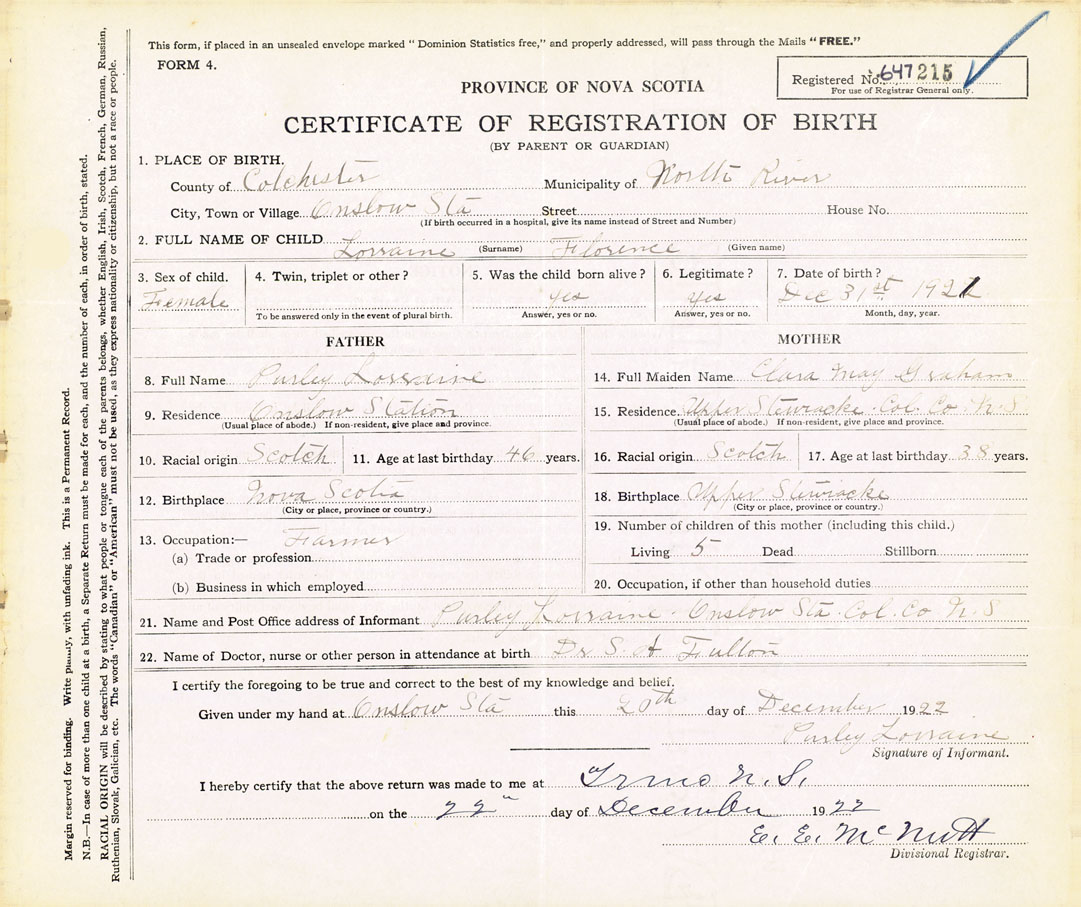 This form, if placed in an unsealed envelope marked " Dominion Statistics free," and properly addressed, will pass through the Mails "FREE."
FORM 4.
Registered No. 647215
For use of Registrar General only.
PROVINCE OF NOVA SCOTIA
CERTIFICATE OF REGISTRATION OF BIRTH
(BY PARENT OR GUARDIAN)
1. PLACE OF BIRTH.
County of Colchester Municipality of North River
City, Town or Village Onslow Sta Street House No.
(If birth occurred in a hospital, give its name instead of Street and Number)
2. FULL NAME OF CHILD Lorraine (Surname) Florence (Given name)
3. Sex of child. 4. Twin, triplet or other? 5. Was the child born alive? 6. Legitimate? 7. Date of birth?
Female yes yes Dec 31st 1921
To be answered only in the event of plural birth. Answer, yes or no. Answer, yes or no. Month, day, year.
FATHER
8. Full Name Purley Lorraine
9. Residence Onslow Station
(Usual place of abode.) If non-resident, give place and province.
10. Racial origin Scotch 11. Age at last birthday 46 years.
12. Birthplace Nova Scotia
(City or place, province or country.)
13. Occupation:— Farmer
(a) Trade or profession
(b) Business in which employed
MOTHER
14. Full Maiden Name Clara May Graham
15. Residence. Upper Stewiacke Col. Co N.S
(Usual place of abode.) If non-resident, give place and province.
16. Racial origin Scotch 17. Age at last birthday 38 years.
18. Birthplace Upper Stewiacke
(City or place, province or country.)
19. Number of children of this mother (including this child.)
Living 5 Dead Stillborn
20. Occupation, if other than household duties
21. Name and Post Office address of Informant Purley Lorraine Onslow Sta. Col. Co N S
22. Name of Doctor, nurse or other person in attendance at birth Dr S. H Fulton
I certify the foregoing to be true and correct to the best of my knowledge and belief.
Given under my hand at Onslow Sta this 20th day of December 1922
Purley Lorraine
Signature of Informant.
I hereby certify that the above return was made to me at N.S.
on the 22" day of December 1922
E. E. McNutt
Divisional Registrar.
Margin reserved for binding. Write plainly, with unfading ink. This is a Permanent Record.
N.B.—In case of more than one child at a birth, a Separate Return must be made for each, and the number of each, in order of birth, stated.
RACIAL ORIGIN will be described by stating to what people or tongue each of the parents belongs, whether English, Irish, Scotch, French, German, Russian,
Ruthenian, Slovak, Galician, etc. The words "Canadian" or "American" must not be used, as they express nationality or citizenship, but not a race or people.